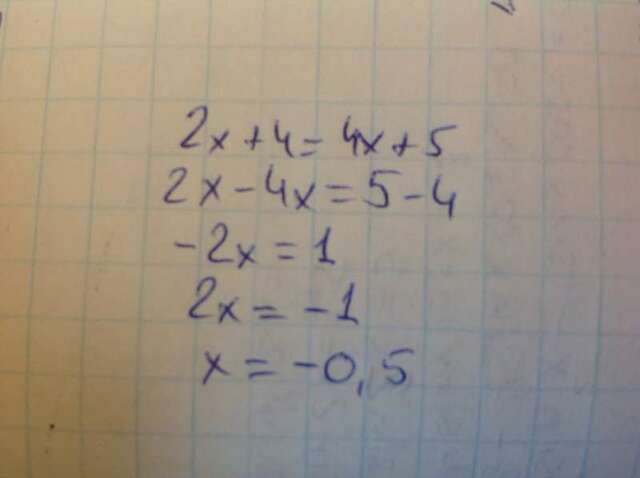 2x+4=4x+5
2x-4x=5-4
-2x=1
2x=-1
x=-0,5